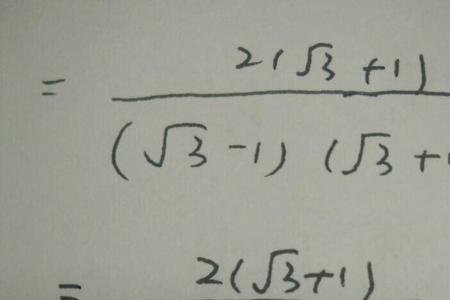 = 2(√3+1)
(√3-1) (√3+
= 2(√3+1)